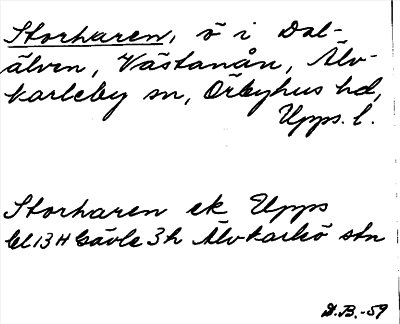 Storharen, ö i Dal-
älven, Västanån, Älv-
karleby sn, Örbyhus hd,
Upps. l.
Storharen ek Upps
bl 13 H Gävle 3h Älvkarleö stn
D.B.-59